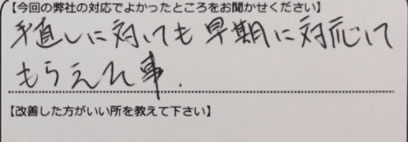 【今回の弊社の対応でよかったところをお聞かせください】
手直しに対しても早期に対応して
もらえた事.
【改善した方がいい所を教えて下さい】